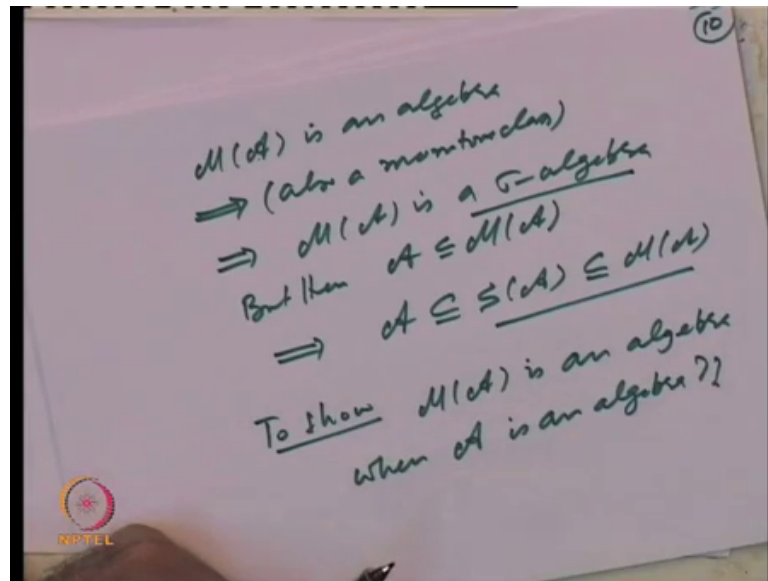 10
M(A) is an algebra
⟹ (also a monotone class)
⟹ M(A) is a σ-algebra
But then A ⊆ M(A)
⟹ A ⊆ S(A) ⊆ M(A)
To show M(A) is an algebra
when A is an algebra??
NPTEL